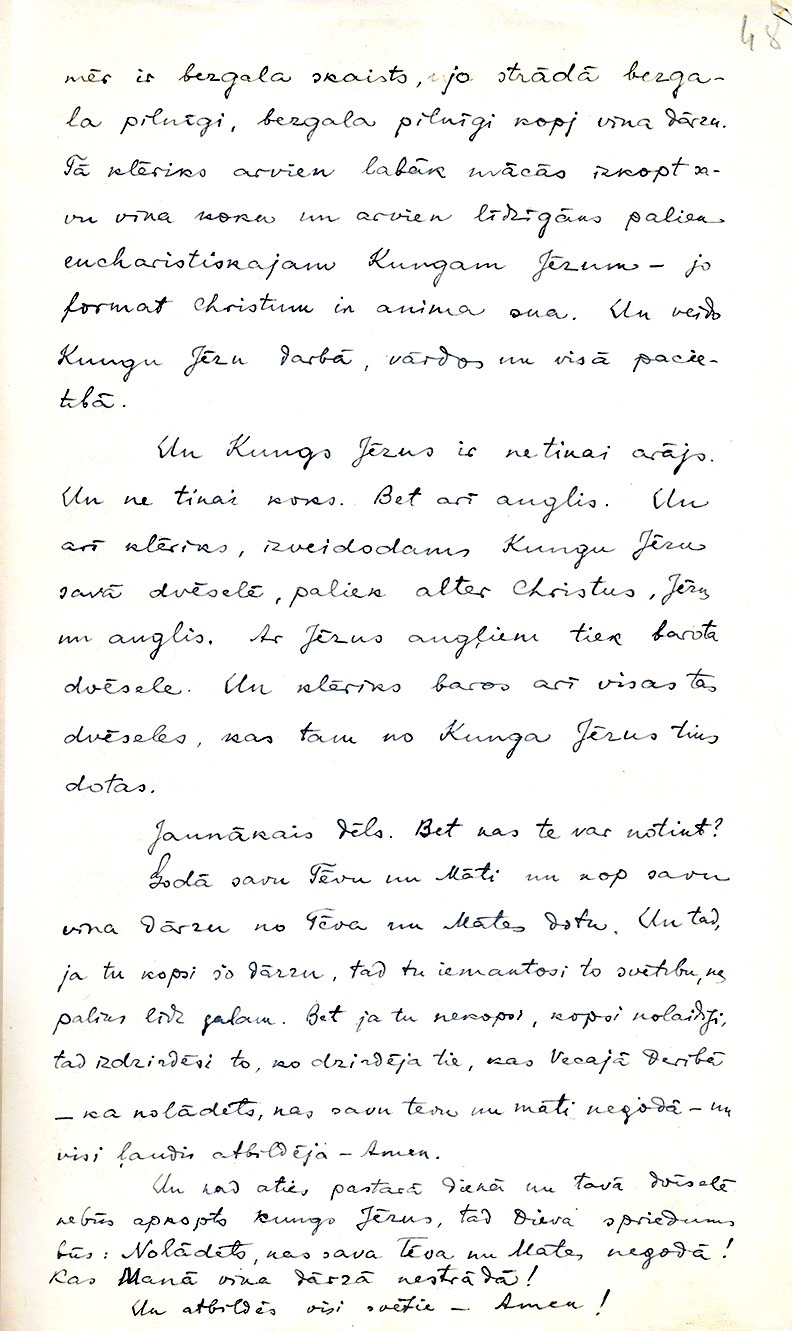 48
mēr ir bezgala skaists, jo strādā bezga-
la pilnīgi, bezgala pilnīgi kopj vīna dārzu.
Tā klēriks arvien labāk mācās izkopt sa-
vu vīna koku un arvien līdzīgāks paliek
eucharistiskajam Kungam Jēzum – jo
format Christum in anima sua. Un veido
Kungu Jēzu darbā, vārdos un visā pacie-
tībā.
Un Kungs Jēzus ir ne tikai arājs.
Un ne tikai koks. Bet arī auglis. Un
arī klēriks, izveidodams Kungu Jēzu
savā dvēselē, paliek alter Christus, Jēzus
un auglis. Ar Jēzus augļiem tiek barota
dvēsele. Un klēriks baros arī visas tās
dvēseles, kas tam no Kunga Jēzus tiks
dotas.
Jaunākais dēls. Bet kas te var notikt?
Godā savu Tēvu un Māti un kop savu
vīna dārzu no Tēva un Mātes dotu. Un tad,
ja tu kopsi šo dārzu, tad tu iemantosi to svētību, kas
paliks līdz galam. Bet ja tu nekopsi, kopsi nolaidīgi,
tad izdzirdēsi to, ko dzirdēja tie, kas Vecajā Derībā
– ka nolādēts, kas savu tēvu un māti negodā – un
visi ļaudis atbildēja – Amen.
Un kad aties pastarā dienā un tavā dvēselē
nebūs apkopts Kungs Jēzus, tad Dieva spriedums
būs: Nolādēts, kas sava Tēva un Mātes negodā!
Kas Manā vīna dārzā nestrādā!
Un atbildēs visi svētie – Amen!